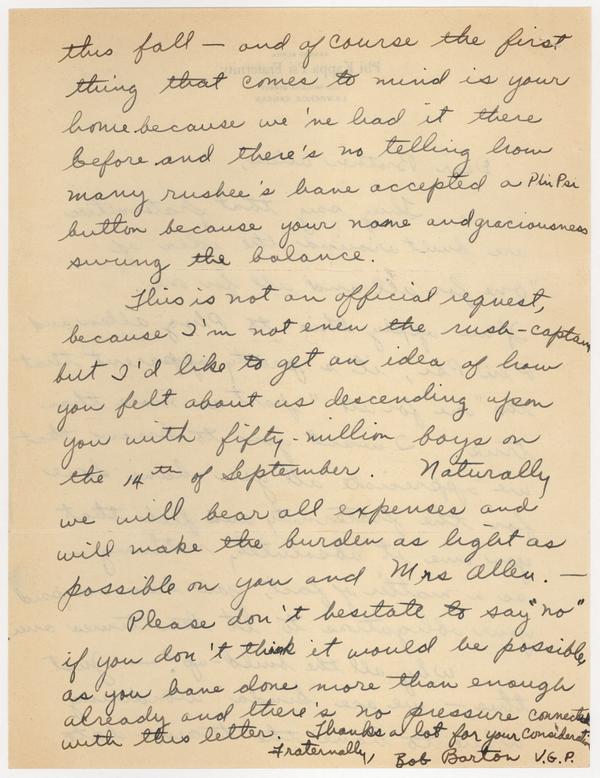 this fall — and of course the first
thing that comes to mind is your
home because we've had it there
before and there's no telling how
many rushee's have accepted a Phi Psi
button because your name and graciousness
swung the balance.
This is not an official request,
because I'm not even the rush-captain
but I'd like to get an idea of how
you felt about us descending upon
you with fifty-million boys on
the 14th of September. Naturally
we will bear all expenses and
will make the burden as light as
possible on you and Mrs Allen. —
Please don't hesitate to say "no"
if you don't think it would be possible,
as you have done more than enough
already and there's no pressure connected
with this letter. Thanks a lot for your consideration
Fraternally, Bob Barton V.G.P.